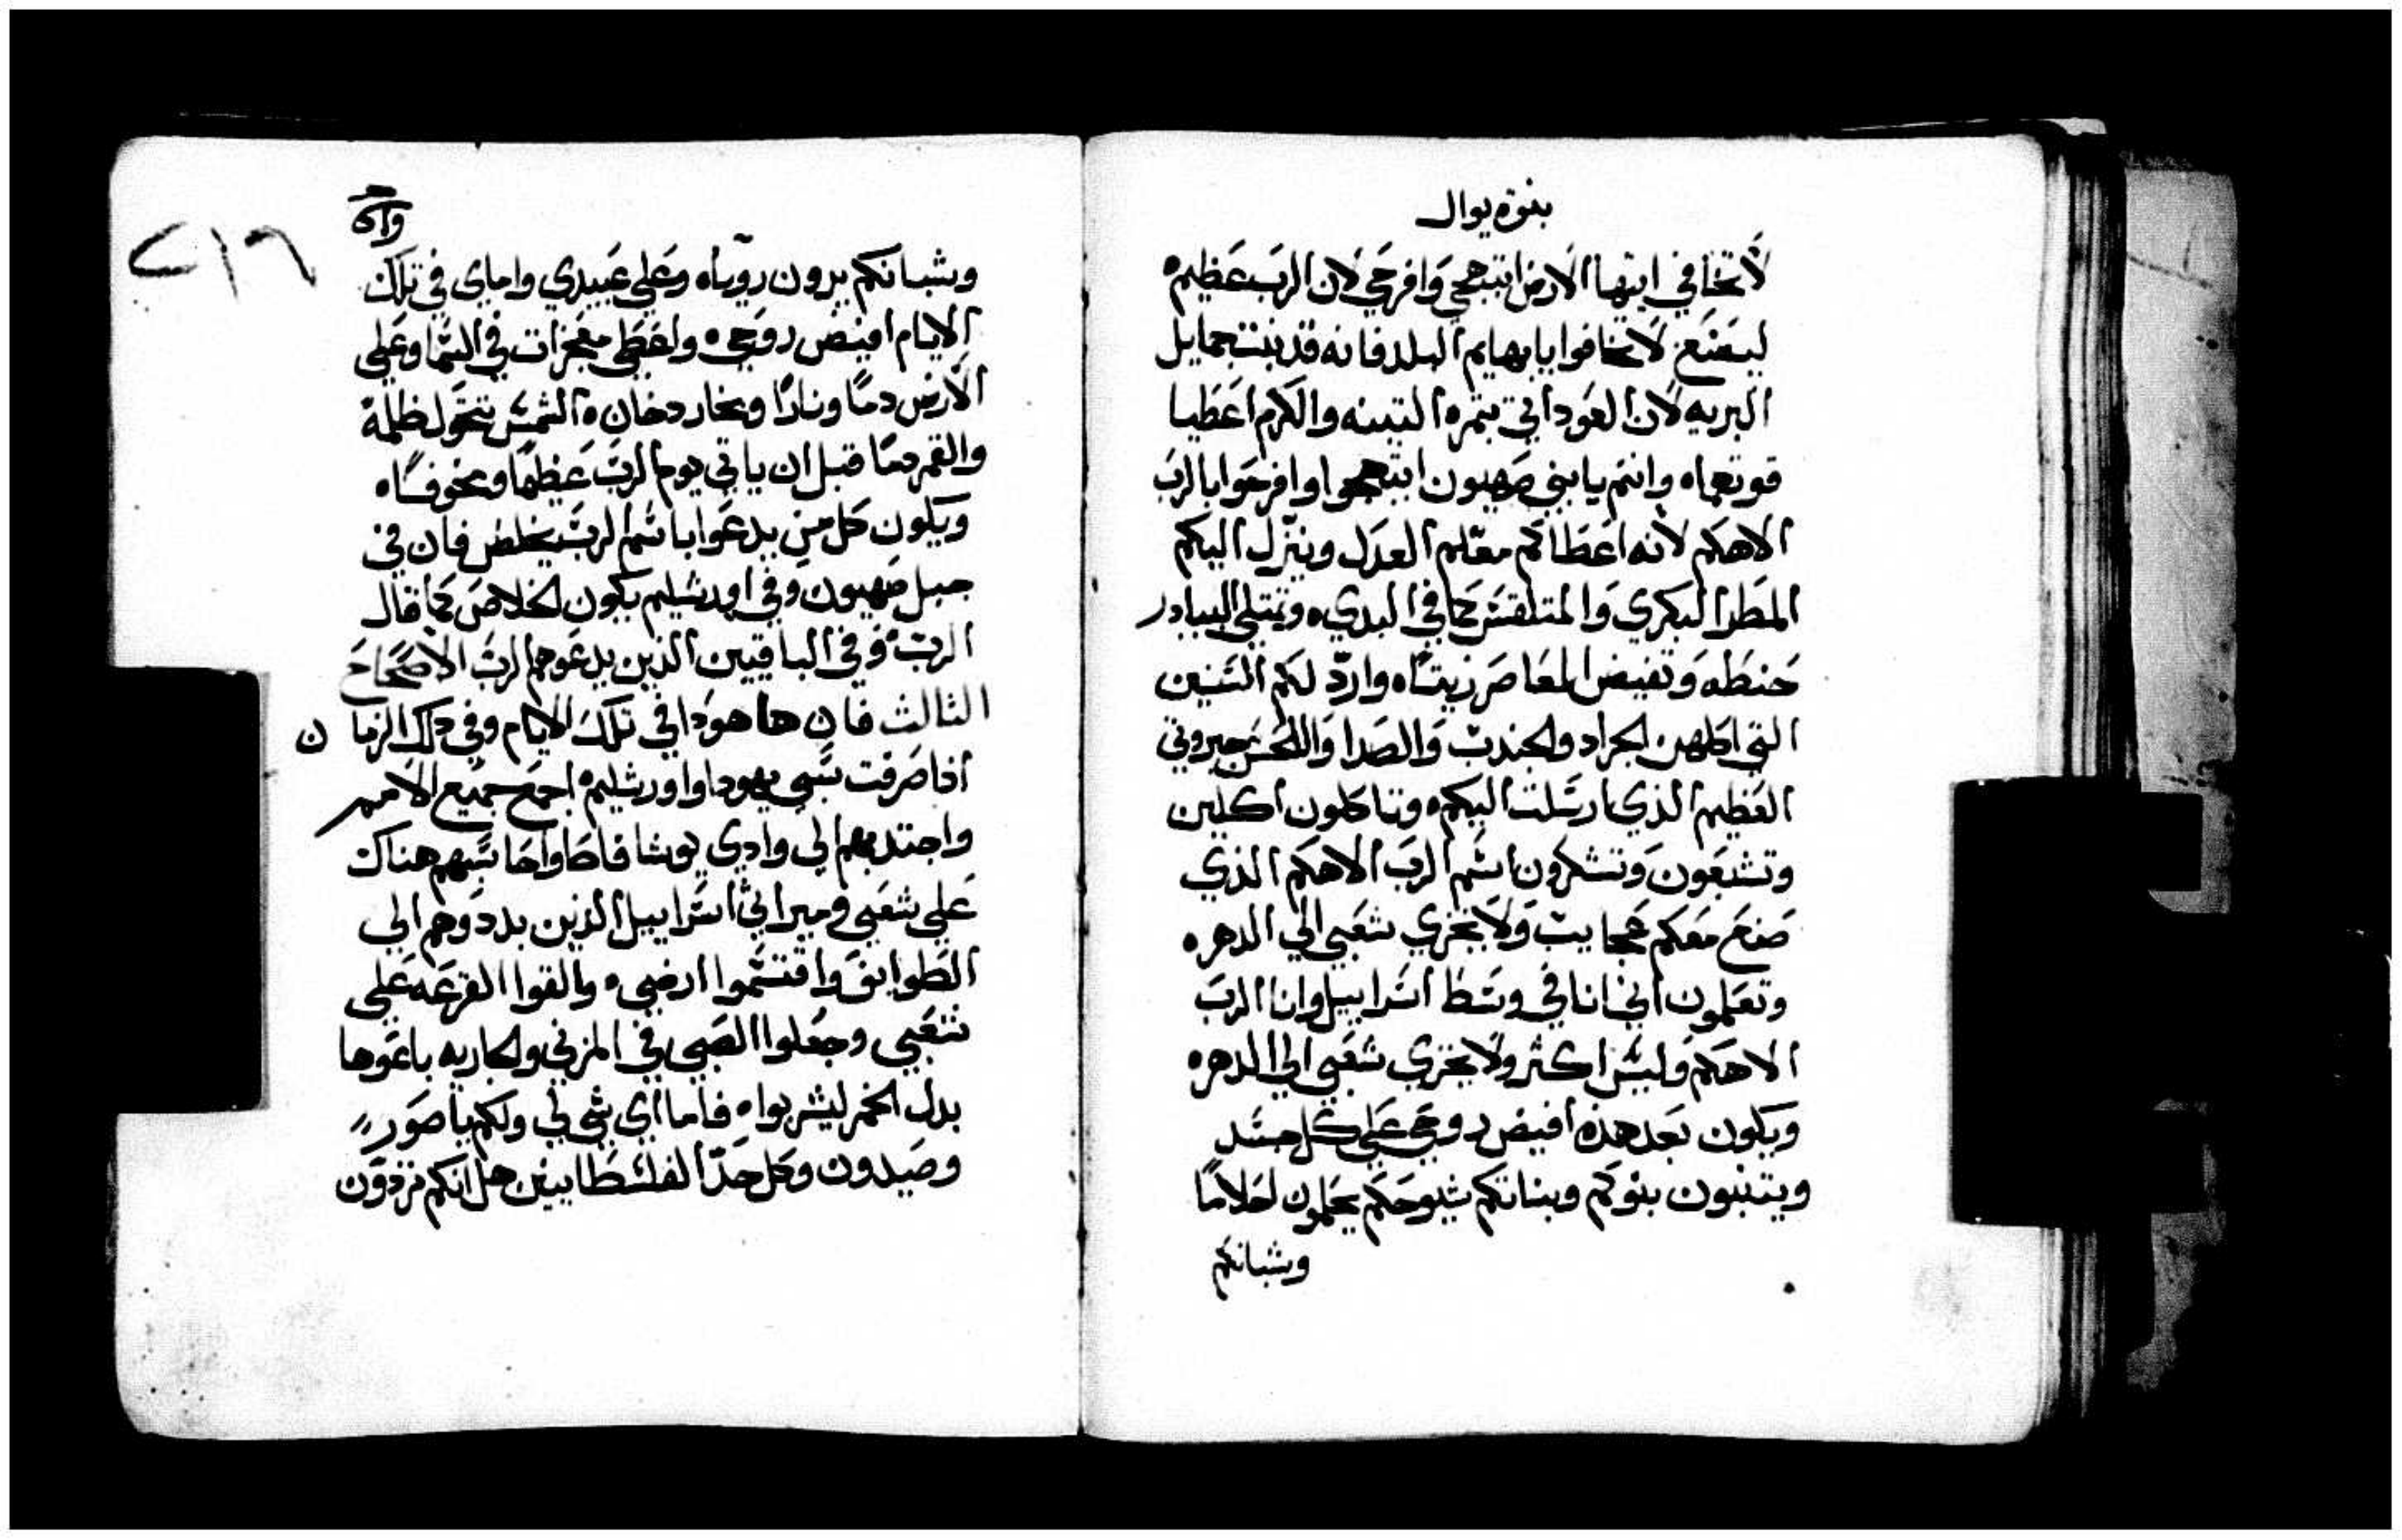 بنوة يوال
لا تخافي ايتها الارض ابتهجي وافرحي لان الرب عظيم ه
ليصنع لا تخافوا يا بهايم البلد فانه قد نبتت جمايل
البريه لان العود اتي بثمره التينه والكرم اعطيا
قوتهما ه وانتم يا بني صهيون ابتهجوا وافرحوا بالرب
الاهكم لانه اعطاكم معلم العدل وينزل اليكم
المطر البكري والمتلقش كما في البدي ه وتمتلي البيادر
حنطه وتفيض المعاصر زيتا ه وارد لكم السنين
التي اكلهن الجراد والجندب والصدا واللحس جبروتي
العظيم الذي ارسلت اليكم ه وتاكلون اكلين
وتشبعون وتشكرون اسم الرب الاهكم الذي
صنع معكم عجايب ولا يخزي شعبي الي الدهر ه
وتعلمون اني انا في وسط اسراييل وانا الرب
الاهكم وليس اكثر ولا يخزي شعبي الي الدهر ه
ويكون بعد هذه افيض روحي علي كل جسد
ويتنبون بنوكم وبناتكم شيوخكم يحلمون احلاما
وشبانكم
٢١٦
وشبانكم يرون رويا ه وعلي عبيدي واماي في تلك
الايام افيض روحي ه واعطي معجزات في السما وعلي
الارض دما ونارا وبخار دخان ه الشمس تتحول ظلمة
والقمر دما قبل ان ياتي يوم الرب عظيما ومخوفا ه
ويكون كل من يدعوا باسم الرب يخلص فان في
جبل صهيون وفي اورشليم يكون الخلاص كما قال
الرب ه وفي الباقيين الذين يدعوهم الرب الاصحاح
الثالث فان ها هودا في تلك الايام وفي دلك الزمان
اذا صرفت سبي يهودا واورشليم ه اجمع جميع الامم
واجتدبهم الي وادي يوشافاط واحاسبهم هناك
علي شعبي وميراثي اسراييل الذين بددوهم الي
الطوايف واقتسموا ارضي ه والقوا القرعه علي
شعبي وجعلوا الصبي في المزني والجاريه باعوها
بدل الخمر ليشربوا ه فاما اي شي لي ولكم يا صور
وصيدون وكل حد الفلسطايين هل انكم تردون